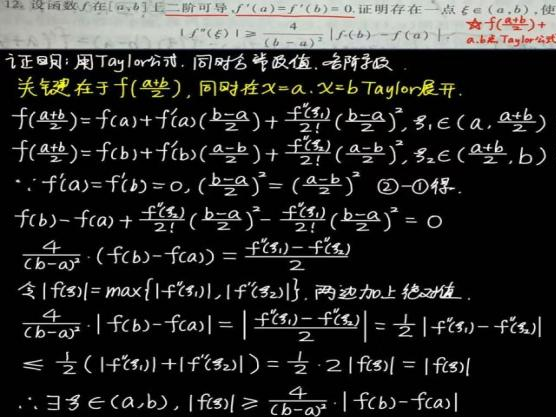 12. 设函数 f 在 [a,b] 上二阶可导, f'(a)=f'(b)=0. 证明存在一点 ξ∈(a,b), 使
|f''(ξ)| ≥ 4/(b-a)² |f(b)-f(a)|.
☆ f((a+b)/2)+
a.b处Taylor公式
证明: 用Taylor公式. 同时含端点值. 含阶导数.
关键在于 f((a+b)/2), 同时在x=a. x=b Taylor展开.
f((a+b)/2)=f(a)+f'(a)((b-a)/2)+f''(ξ₁)/2!((b-a)/2)², ξ₁∈(a, (a+b)/2)
f((a+b)/2)=f(b)+f'(b)((a-b)/2)+f''(ξ₂)/2!((a-b)/2)², ξ₂∈((a+b)/2, b)
∵ f'(a)=f'(b)=0, ((b-a)/2)²=((a-b)/2)² ②-①得.
f(b)-f(a)+f''(ξ₂)/2!((b-a)/2)²-f''(ξ₁)/2!((b-a)/2)²=0
4/(b-a)²·(f(b)-f(a))=(f''(ξ₁)-f''(ξ₂))/2
令|f''(ξ)|=max{|f''(ξ₁)|,|f''(ξ₂)|}. 两边加上绝对值.
4/(b-a)²·|f(b)-f(a)|=|(f''(ξ₁)-f''(ξ₂))/2|=1/2|f''(ξ₁)-f''(ξ₂)|
≤1/2(|f''(ξ₁)|+|f''(ξ₂)|)=1/2·2|f''(ξ)|=|f''(ξ)|
∴∃ξ∈(a,b), |f''(ξ)|≥4/(b-a)²·|f(b)-f(a)|